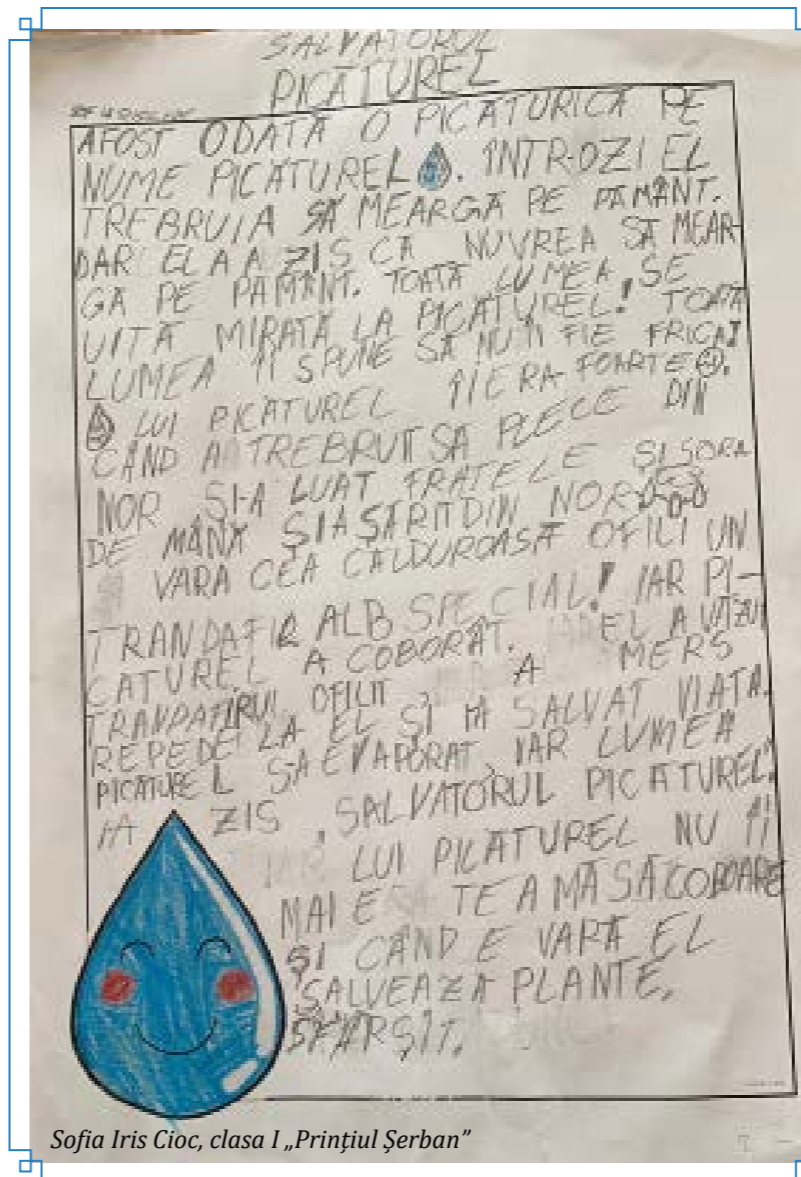 SALVATORUL
PICĂTUREL
AFOST ODATĂ O PICĂTURICĂ PE
NUME PICĂTUREL. ÎNTR-OZI EL
TREBRUIA SĂ MEARGĂ PE PĂMÂNT.
DAR EL A A ZIS CĂ NUVREA SĂ MEAR-
GĂ PE PĂMÂNT. TOATĂ LUMEA SE
UITĂ MIRATĂ LA PICĂTUREL! TOATĂ
LUMEA ÎI SPUNE SĂ NU ÎI FIE FRICĂ!
LUI PICĂTUREL ÎIERA FOARTE.
CÂND A TREBRUIT SĂ PLECE DIN
NOR ȘI-A LUAT FRATELE ȘI SORA
DE MÂNĂ ȘIASĂRITDIN NOR
VARA CEA CĂLDUROASĂ OFILI UN
TRANDAFIR ALB SPECIAL! IAR PI-
CĂTUREL A COBORÂT. EL A VĂZUT
TRANDAFIRUL OFILIT, A MERS
REPEDE LA EL ȘI IA SALVAT VIAȚA.
PICĂTUREL SAEVAPORAT, IAR LUMEA
IA ZIS „SALVATORUL PICĂTUREL."
LUI PICĂTUREL NU ÎI
MAI E TEAMĂ SĂCOBOARE
ȘI CÂND E VARĂ EL
SALVEAZĂ PLANTE.
SFÂRȘIT.
Sofia Iris Cioc, clasa I „Prințiul Șerban”